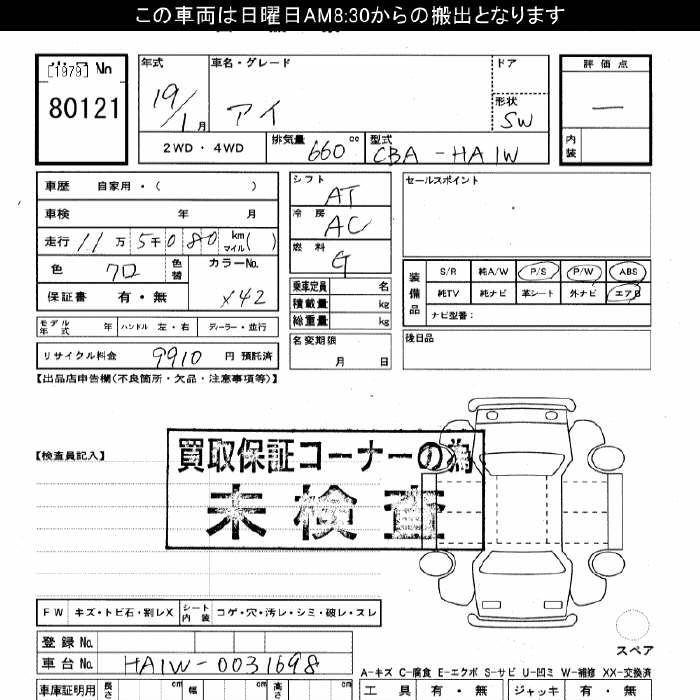 この車両は日曜日AM8:30からの搬出となります
[1979] No
80121
年式 19/1 月
車名・グレード アイ
ドア
形状 SW
評価点 —
内装
2WD・4WD
排気量 660 cc
型式 CBA-HA1W
車歴 自家用・( )
車検 年 月
走行 11万5千080 km マイル( )
色 クロ 色替
カラーNo. X42
保証書 有・無
モデル年式 年 ハンドル 左・右 ディーラー・並行
リサイクル料金 9910 円 預託済
シフト AT
冷房 AC
燃料 G
乗車定員 名
積載量 kg
総重量 kg
名変期限 月 日
セールスポイント
装備品
S/R 純A/W P/S P/W ABS
純TV 純ナビ 革シート 外ナビ エアB
ナビ型番:
後日品
【出品店申告欄(不良箇所・欠品・注意事項等)】
【検査員記入】
買取保証コーナーの為
未検査
FW キズ・トビ石・割レX シート内装 コゲ・穴・汚レ・シミ・破レ・スレ
登録No.
車台No. HA1W-0031698
スペア
A-キズ C-腐食 E-エクボ S-サビ U-凹ミ W-補修 XX-交換済
車庫証明用 長さ cm 幅 cm 高さ cm
工具 有・無 ジャッキ 有・無